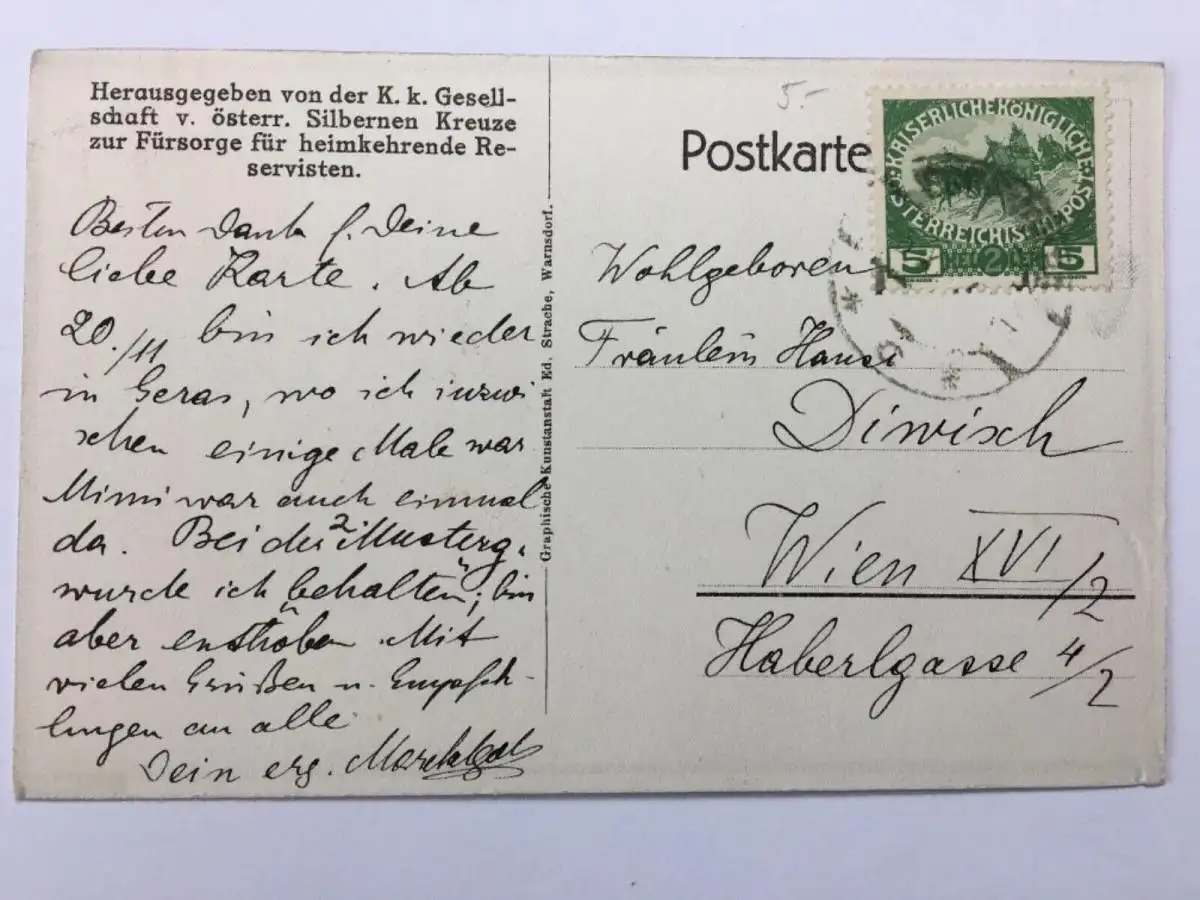 Herausgegeben von der K. k. Gesell-
schaft v. österr. Silbernen Kreuze
zur Fürsorge für heimkehrende Re-
servisten.
Besten Dank f. Deine
liebe Karte. Ab
20./11 bin ich wieder
in Geras, wo ich inzwi
schen einige Male war
Mimi war auch einmal
da. Bei der 2 Musterg.
wurde ich "behalten", bin
aber enthoben. Mit
vielen Grüßen u. Empfeh-
lungen an alle
Dein erg.
Graphische Kunstanstalt Ed. Strache, Warnsdorf.
5.-
Postkarte
KAISERLICHE KÖNIGLICHE
ÖSTERREICHISCHE POST
5 HELLER 5
2
Wohlgeboren
Fräulein Hansi
Diwisch
Wien XVI/2
Haberlgasse 4/2